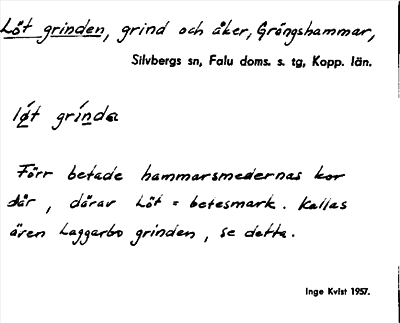 Löt grinden, grind och åker, Grängshammar,
Silvbergs sn, Falu doms. s. tg, Kopp. län.
lǿt grínda
Förr betade hammarsmedernas kor
där, därav Löt = betesmark. Kallas
även Laggarbo grinden, se detta.
Inge Kvist 1957.